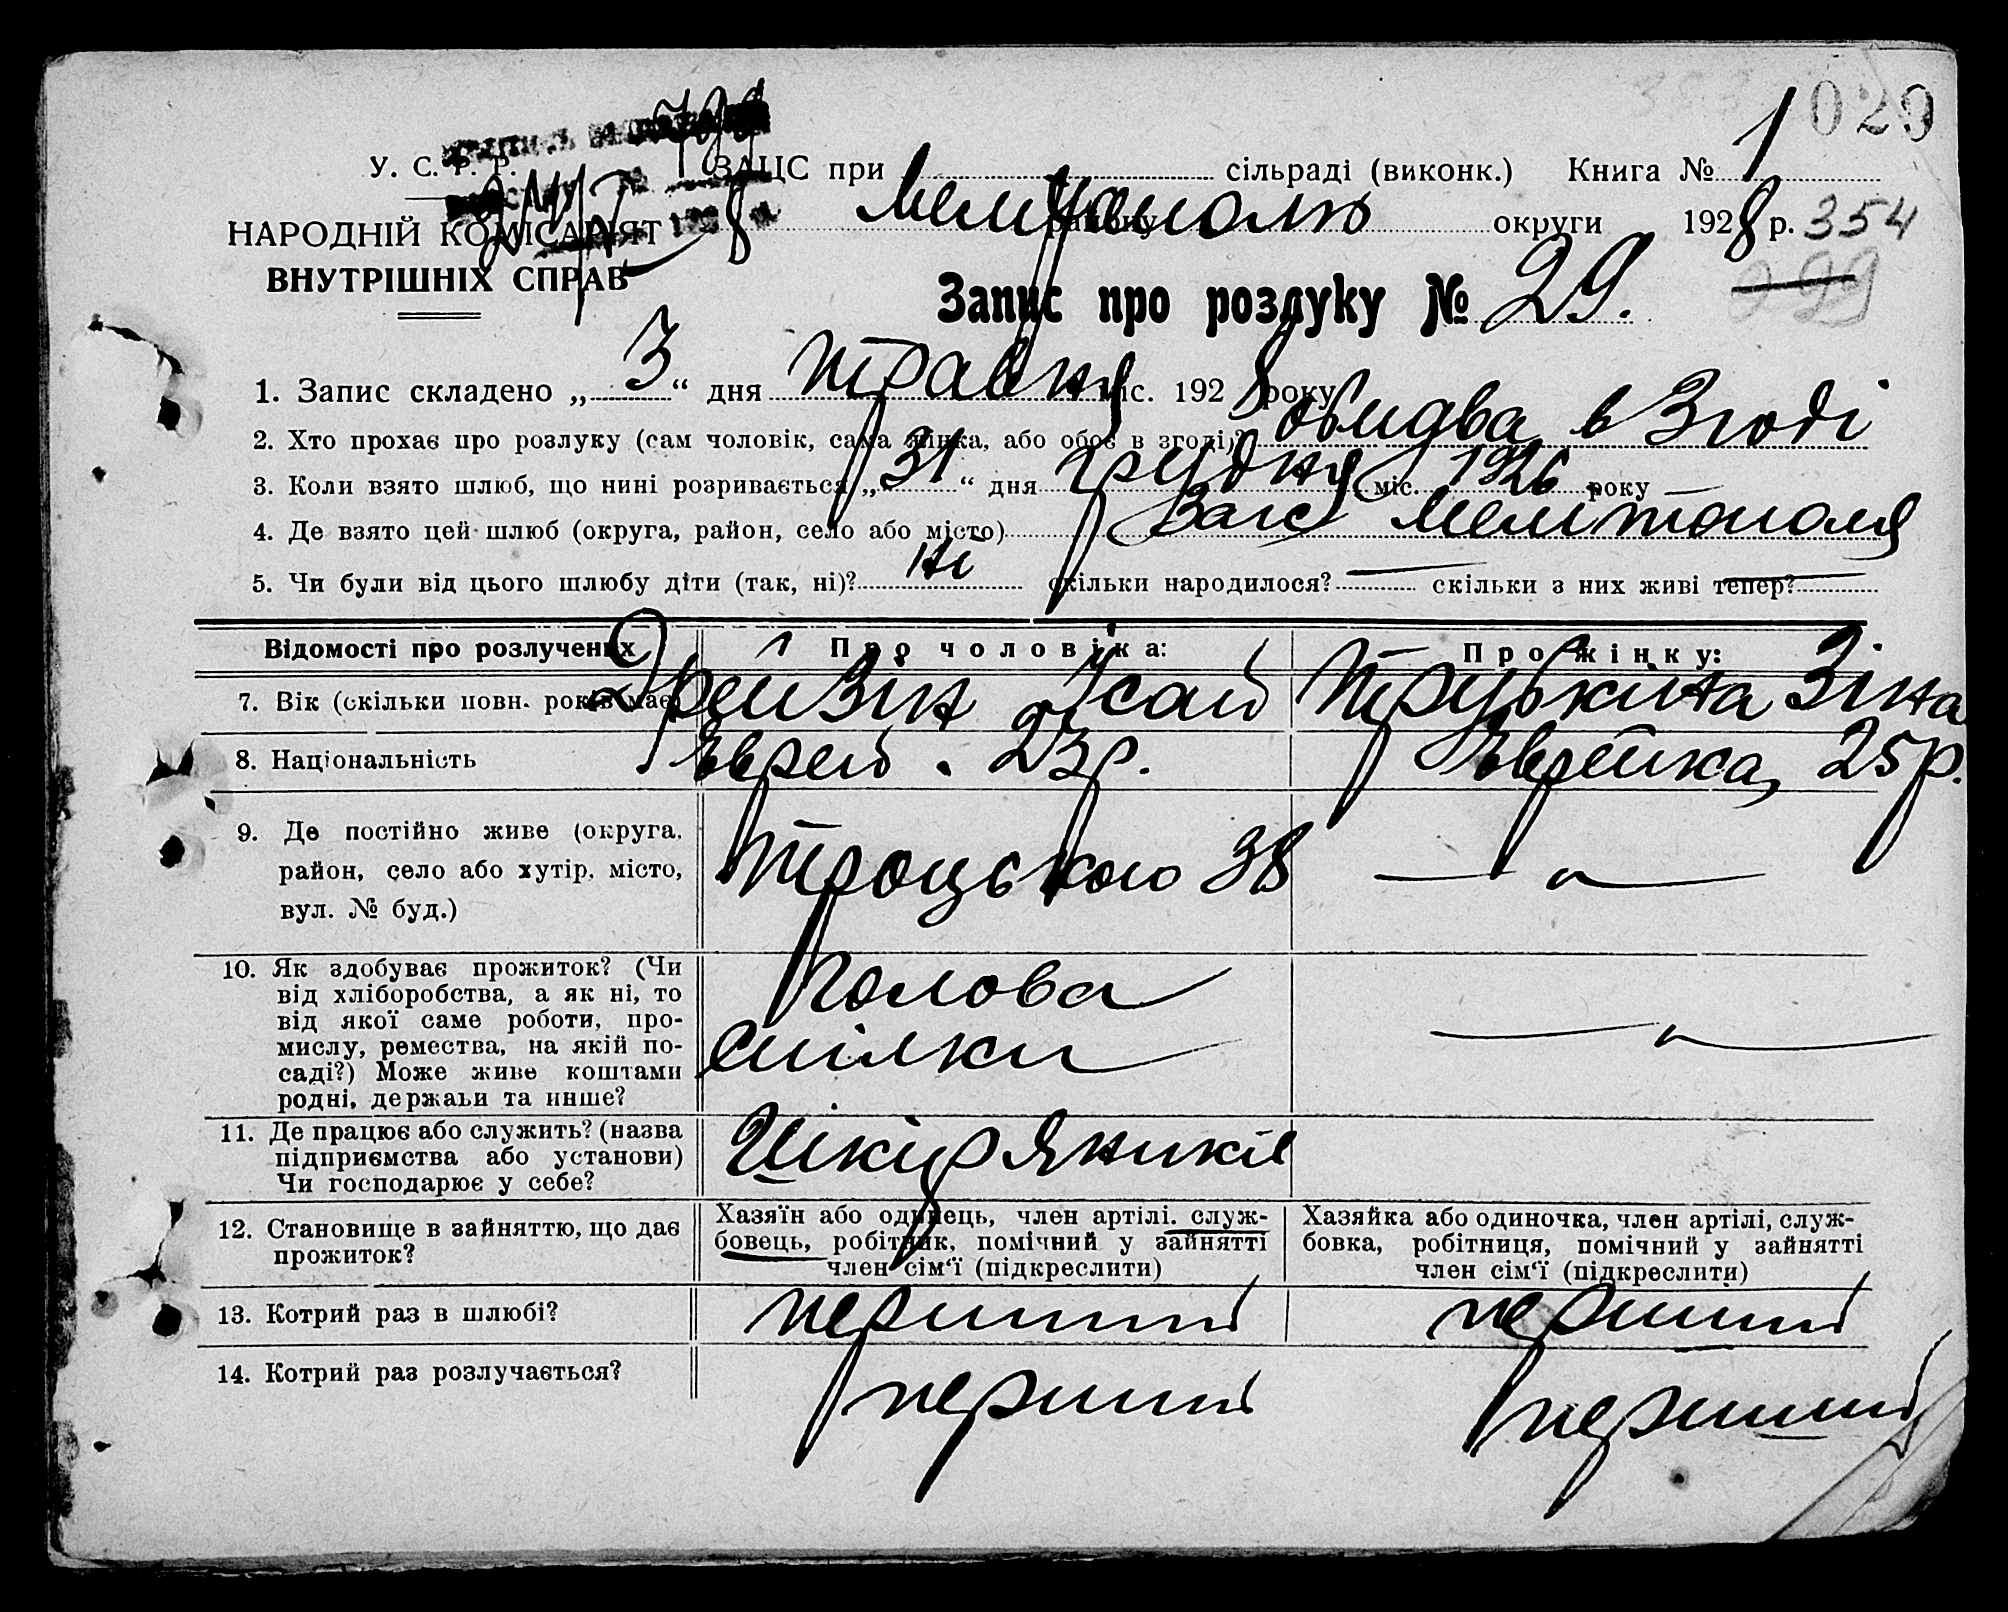 1029
У. С. Р. Р. ЗАЦС при сільраді (виконк.) Книга № 1
НАРОДНІЙ КОМІСАРІЯТ
ВНУТРІШНІХ СПРАВ
Мелітополь району округи 1928 р. 354
299
Запис про розлуку № 29.
1. Запис складено „ 3 “ дня травня міс. 1928 року
2. Хто прохає про розлуку (сам чоловік, сама жінка, або обоє в згоді)? обидва в згоді
3. Коли взято шлюб, що нині розривається „ 31 “ дня грудня міс. 1926 року
4. Де взято цей шлюб (округа, район, село або місто) Загс Мелітополя
5. Чи були від цього шлюбу діти (так, ні)? ні скільки народилося? — скільки з них живі тепер? —
Відомості про розлучених Про чоловіка: Про жінку:
7. Вік (скільки повн. років має) Ісай Зіна
8. Національність Єврей. 23 р. Єврейка, 25 р.
9. Де постійно живе (округа, район, село або хутір, місто, вул. № буд.) Троцького 38 — „ —
10. Як здобуває прожиток? (Чи від хліборобства, а як ні, то від якої саме роботи, промислу, ремества, на якій посаді?) Може живе коштами родні, держави та инше? Голова Спілки — „ —
11. Де працює або служить? (назва підприємства або установи) Чи господарює у себе? Шкіряників
12. Становище в зайняттю, що дає прожиток? Хазяїн або одинець, член артілі, службовець, робітник, помічний у зайнятті член сім‘ї (підкреслити) Хазяйка або одиночка, член артілі, службовка, робітниця, помічний у зайнятті член сім‘ї (підкреслити)
13. Котрий раз в шлюбі? перший перший
14. Котрий раз розлучається? перший перший